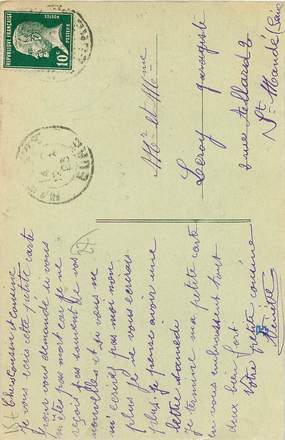 RÉPUBLIQUE FRANÇAISE
POSTES
10c
Mr et Mme
Leroy garagiste
rue Allard
St Mandé (Seine
Chers Cousin et cousine
Je vous écris cette petite carte
pour vous demander si vous
n'êtes pas mort car je ne
reçois pas souvent de vos
nouvelles et si vous ne
m'écrivez pas moi non
plus je ne vous écrirais
plus je pense avoir une
lettre samedi
Je termine ma petite carte
en vous embrassant tout
deux bien fort
Votre petite cousine